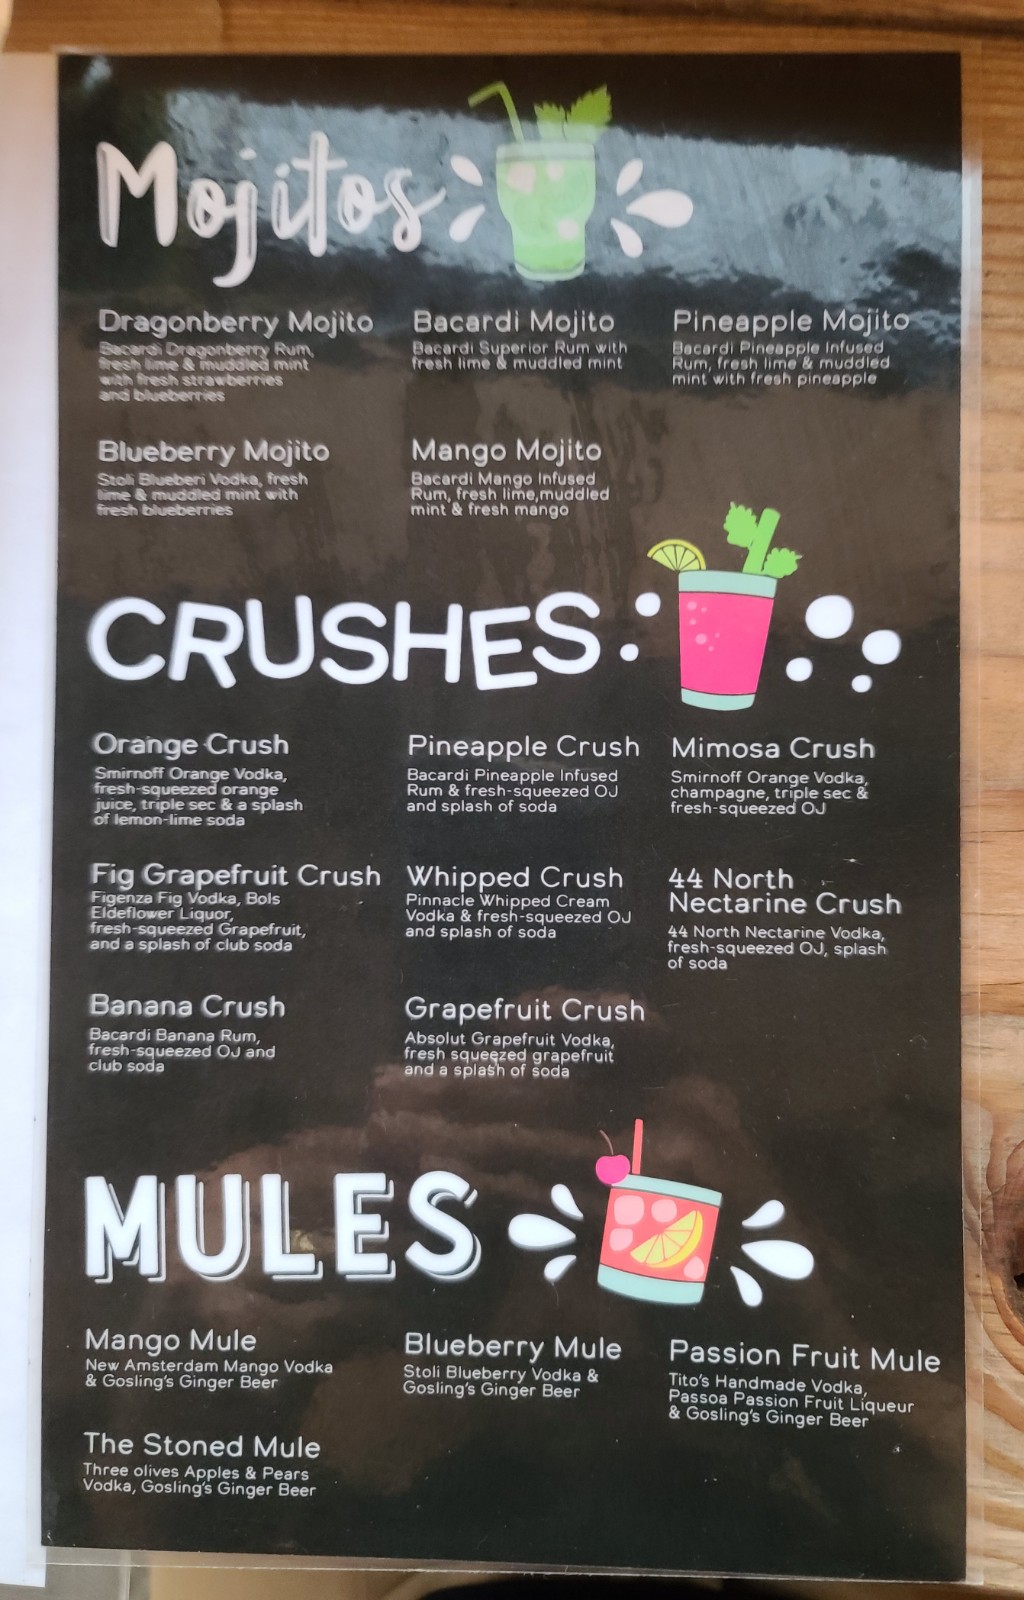 Mojitos
Dragonberry Mojito
Bacardi Dragonberry Rum,
fresh lime & muddled mint
with fresh strawberries
and blueberries
Bacardi Mojito
Bacardi Superior Rum with
fresh lime & muddled mint
Pineapple Mojito
Bacardi Pineapple Infused
Rum, fresh lime & muddled
mint with fresh pineapple
Blueberry Mojito
Stoli Blueberi Vodka, fresh
lime & muddled mint with
fresh blueberries
Mango Mojito
Bacardi Mango Infused
Rum, fresh lime,muddled
mint & fresh mango
CRUSHES
Orange Crush
Smirnoff Orange Vodka,
fresh-squeezed orange
juice, triple sec & a splash
of lemon-lime soda
Pineapple Crush
Bacardi Pineapple Infused
Rum & fresh-squeezed OJ
and splash of soda
Mimosa Crush
Smirnoff Orange Vodka,
champagne, triple sec &
fresh-squeezed OJ
Fig Grapefruit Crush
Figenza Fig Vodka, Bols
Eldeflower Liquor,
fresh-squeezed Grapefruit,
and a splash of club soda
Whipped Crush
Pinnacle Whipped Cream
Vodka & fresh-squeezed OJ
and splash of soda
44 North
Nectarine Crush
44 North Nectarine Vodka,
fresh-squeezed OJ, splash
of soda
Banana Crush
Bacardi Banana Rum,
fresh-squeezed OJ and
club soda
Grapefruit Crush
Absolut Grapefruit Vodka,
fresh squeezed grapefruit
and a splash of soda
MULES
Mango Mule
New Amsterdam Mango Vodka
& Gosling's Ginger Beer
Blueberry Mule
Stoli Blueberry Vodka &
Gosling's Ginger Beer
Passion Fruit Mule
Tito's Handmade Vodka,
Passoa Passion Fruit Liqueur
& Gosling's Ginger Beer
The Stoned Mule
Three olives Apples & Pears
Vodka, Gosling's Ginger Beer